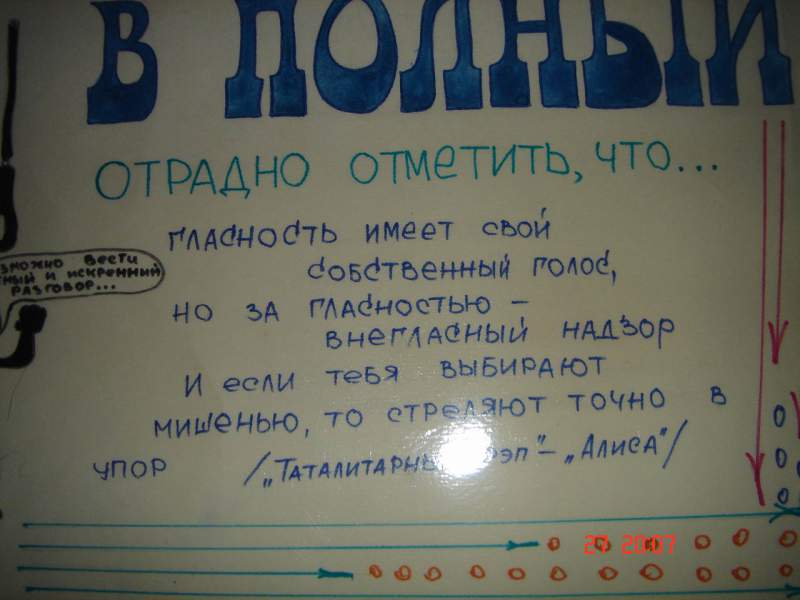 В ПОЛНЫЙ
ОТРАДНО ОТМЕТИТЬ, ЧТО...
ГЛАСНОСТЬ ИМЕЕТ СВОЙ
СОБСТВЕННЫЙ ГОЛОС,
НО ЗА ГЛАСНОСТЬЮ –
ВНЕГЛАСНЫЙ НАДЗОР
И ЕСЛИ ТЕБЯ ВЫБИРАЮТ
МИШЕНЬЮ, ТО СТРЕЛЯЮТ ТОЧНО В
УПОР /„ТАТАЛИТАРНЫ РЭП"– „АЛИСА"/
ВЕСТИ
И ИСКРЕННИЙ
РАЗГОВОР...
2007